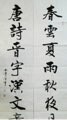 春雲夏雨秋夜
唐詩晉字漢文章